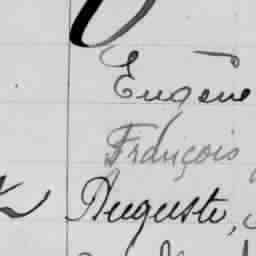 Eugène
François
Auguste,